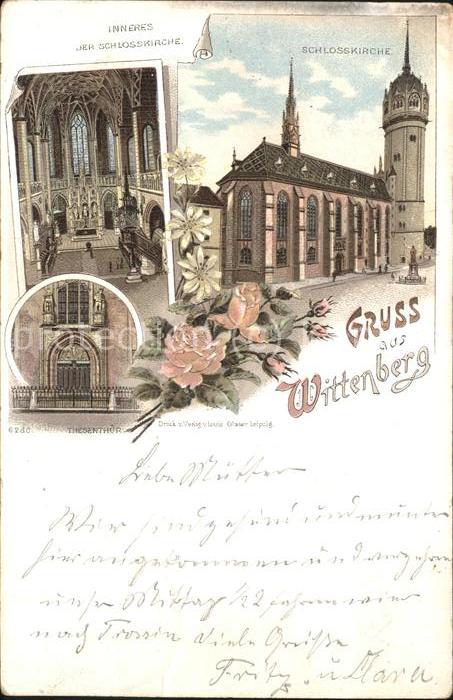 INNERES
DER SCHLOSSKIRCHE.
SCHLOSSKIRCHE.
GRUSS
aus
Wittenberg
THESENTHÜR.
Druck u. Verlag v. Louis Glaser Leipzig.
Liebe Mutter
Wir sind gesund und munter
hier angekommen und
unser Mittag 1/2 2 fahren wir
nach Trossin Viele Grüße
Fritz u Clara